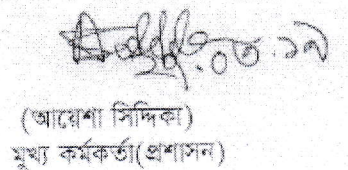 .০৩.১৯
(আয়েশা সিদ্দিকা)
মুখ্য কর্মকর্তা(প্রশাসন)